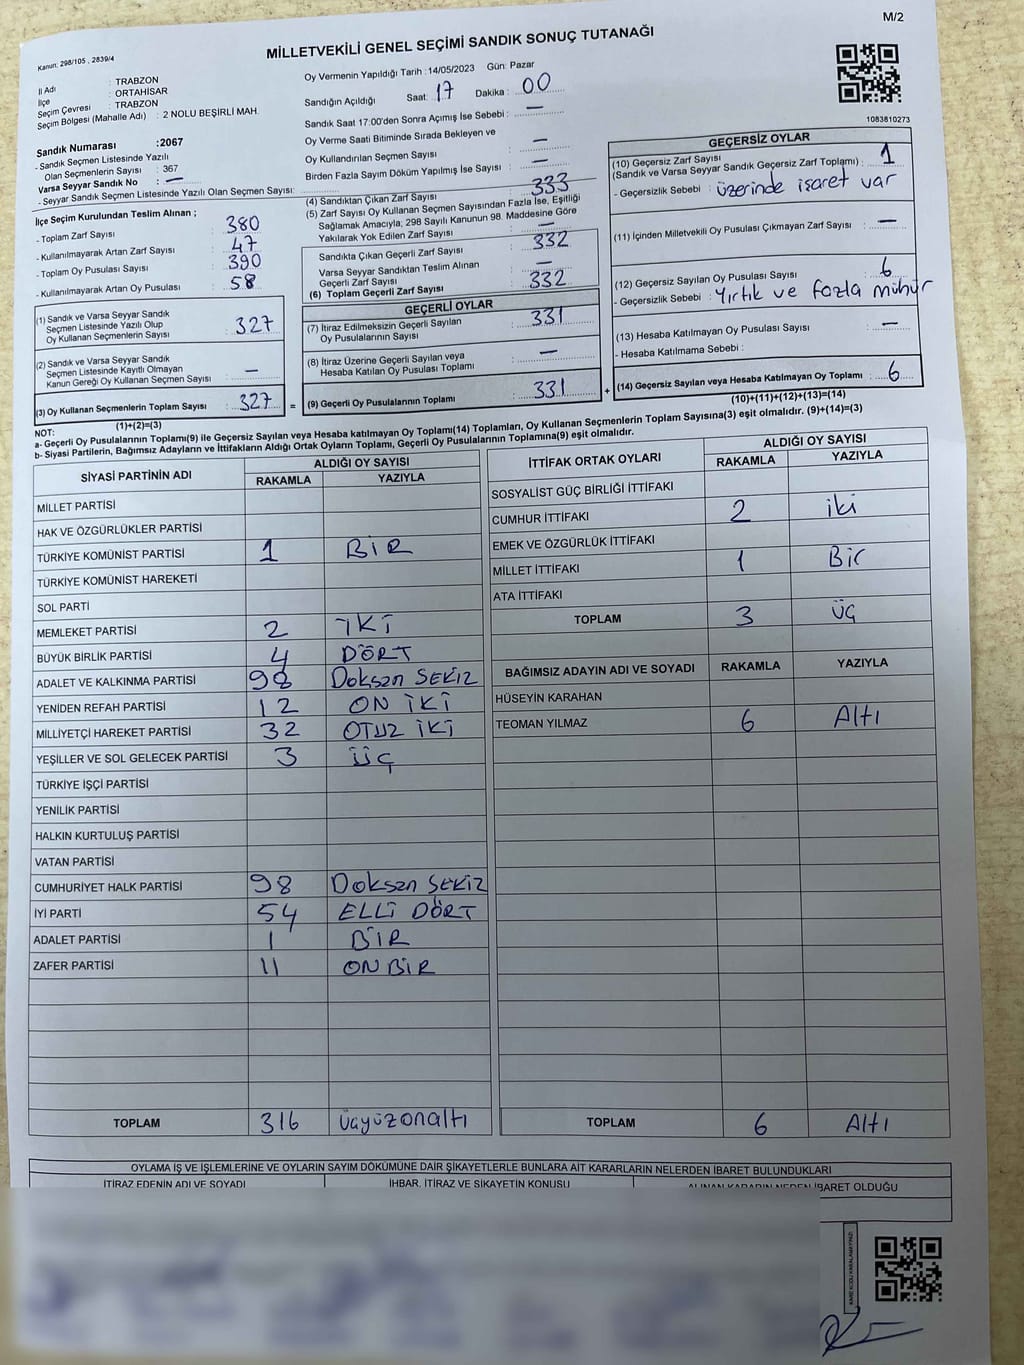 M/2
Kanun: 298/105 , 2839/4
MİLLETVEKİLİ GENEL SEÇİMİ SANDIK SONUÇ TUTANAĞI
İl Adı : TRABZON
İlçe : ORTAHİSAR
Seçim Çevresi : TRABZON
Seçim Bölgesi (Mahalle Adı) : 2 NOLU BEŞİRLİ MAH.
Sandık Numarası :2067
- Sandık Seçmen Listesinde Yazılı
Olan Seçmenlerin Sayısı : 367
Varsa Seyyar Sandık No : —
- Seyyar Sandık Seçmen Listesinde Yazılı Olan Seçmen Sayısı:
İlçe Seçim Kurulundan Teslim Alınan ;
- Toplam Zarf Sayısı : 380
- Kullanılmayarak Artan Zarf Sayısı : 47
- Toplam Oy Pusulası Sayısı : 390
- Kullanılmayarak Artan Oy Pusulası : 58
(1) Sandık ve Varsa Seyyar Sandık
Seçmen Listesinde Yazılı Olup
Oy Kullanan Seçmenlerin Sayısı : 327
(2) Sandık ve Varsa Seyyar Sandık
Seçmen Listesinde Kayıtlı Olmayan
Kanun Gereği Oy Kullanan Seçmen Sayısı : —
(3) Oy Kullanan Seçmenlerin Toplam Sayısı : 327
(1)+(2)=(3)
Oy Vermenin Yapıldığı Tarih :14/05/2023 Gün: Pazar
Sandığın Açıldığı Saat: 17 Dakika : 00
Sandık Saat 17:00'den Sonra Açımış İse Sebebi : —
Oy Verme Saati Bitiminde Sırada Bekleyen ve
Oy Kullandırılan Seçmen Sayısı : —
Birden Fazla Sayım Döküm Yapılmış İse Sayısı : —
(4) Sandıktan Çıkan Zarf Sayısı : 333
(5) Zarf Sayısı Oy Kullanan Seçmen Sayısından Fazla İse, Eşitliği
Sağlamak Amacıyla; 298 Sayılı Kanunun 98. Maddesine Göre
Yakılarak Yok Edilen Zarf Sayısı : —
Sandıkta Çıkan Geçerli Zarf Sayısı : 332
Varsa Seyyar Sandıktan Teslim Alınan
Geçerli Zarf Sayısı : —
(6) Toplam Geçerli Zarf Sayısı : 332
GEÇERLİ OYLAR
(7) İtiraz Edilmeksizin Geçerli Sayılan
Oy Pusulalarının Sayısı : 331
(8) İtiraz Üzerine Geçerli Sayılan veya
Hesaba Katılan Oy Pusulası Toplamı : —
= (9) Geçerli Oy Pusulalarının Toplamı : 331 +
1083810273
GEÇERSİZ OYLAR
(10) Geçersiz Zarf Sayısı
(Sandık ve Varsa Seyyar Sandık Geçersiz Zarf Toplamı) : 1
- Geçersizlik Sebebi : üzerinde işaret var
(11) İçinden Milletvekili Oy Pusulası Çıkmayan Zarf Sayısı : —
(12) Geçersiz Sayılan Oy Pusulası Sayısı : 6
- Geçersizlik Sebebi : Yırtık ve fazla mühür
(13) Hesaba Katılmayan Oy Pusulası Sayısı : —
- Hesaba Katılmama Sebebi :
(14) Geçersiz Sayılan veya Hesaba Katılmayan Oy Toplamı : 6
(10)+(11)+(12)+(13)=(14)
NOT:
a- Geçerli Oy Pusulalarının Toplamı(9) ile Geçersiz Sayılan veya Hesaba katılmayan Oy Toplamı(14) Toplamları, Oy Kullanan Seçmenlerin Toplam Sayısına(3) eşit olmalıdır. (9)+(14)=(3)
b- Siyasi Partilerin, Bağımsız Adayların ve İttifakların Aldığı Ortak Oyların Toplamı, Geçerli Oy Pusulalarının Toplamına(9) eşit olmalıdır.
SİYASİ PARTİNİN ADI ALDIĞI OY SAYISI
RAKAMLA YAZIYLA
MİLLET PARTİSİ
HAK VE ÖZGÜRLÜKLER PARTİSİ
TÜRKİYE KOMÜNİST PARTİSİ 1 BİR
TÜRKİYE KOMÜNİST HAREKETİ
SOL PARTİ
MEMLEKET PARTİSİ 2 İKİ
BÜYÜK BİRLİK PARTİSİ 4 DÖRT
ADALET VE KALKINMA PARTİSİ 98 Doksan SEKİZ
YENİDEN REFAH PARTİSİ 12 ON İKİ
MİLLİYETÇİ HAREKET PARTİSİ 32 OTUZ İKİ
YEŞİLLER VE SOL GELECEK PARTİSİ 3 ÜÇ
TÜRKİYE İŞÇİ PARTİSİ
YENİLİK PARTİSİ
HALKIN KURTULUŞ PARTİSİ
VATAN PARTİSİ
CUMHURİYET HALK PARTİSİ 98 Doksan SEKİZ
İYİ PARTİ 54 ELLİ DÖRT
ADALET PARTİSİ 1 BİR
ZAFER PARTİSİ 11 ON BİR
TOPLAM 316 üçyüzonaltı
İTTİFAK ORTAK OYLARI ALDIĞI OY SAYISI
RAKAMLA YAZIYLA
SOSYALİST GÜÇ BİRLİĞİ İTTİFAKI
CUMHUR İTTİFAKI 2 iki
EMEK VE ÖZGÜRLÜK İTTİFAKI
MİLLET İTTİFAKI 1 Bir
ATA İTTİFAKI
TOPLAM 3 ÜÇ
BAĞIMSIZ ADAYIN ADI VE SOYADI RAKAMLA YAZIYLA
HÜSEYİN KARAHAN
TEOMAN YILMAZ 6 Altı
TOPLAM 6 Altı
OYLAMA İŞ VE İŞLEMLERİNE VE OYLARIN SAYIM DÖKÜMÜNE DAİR ŞİKAYETLERLE BUNLARA AİT KARARLARIN NELERDEN İBARET BULUNDUKLARI
İTİRAZ EDENİN ADI VE SOYADI İHBAR, İTİRAZ VE ŞİKAYETİN KONUSU ALINAN KARARIN NEDEN İBARET OLDUĞU